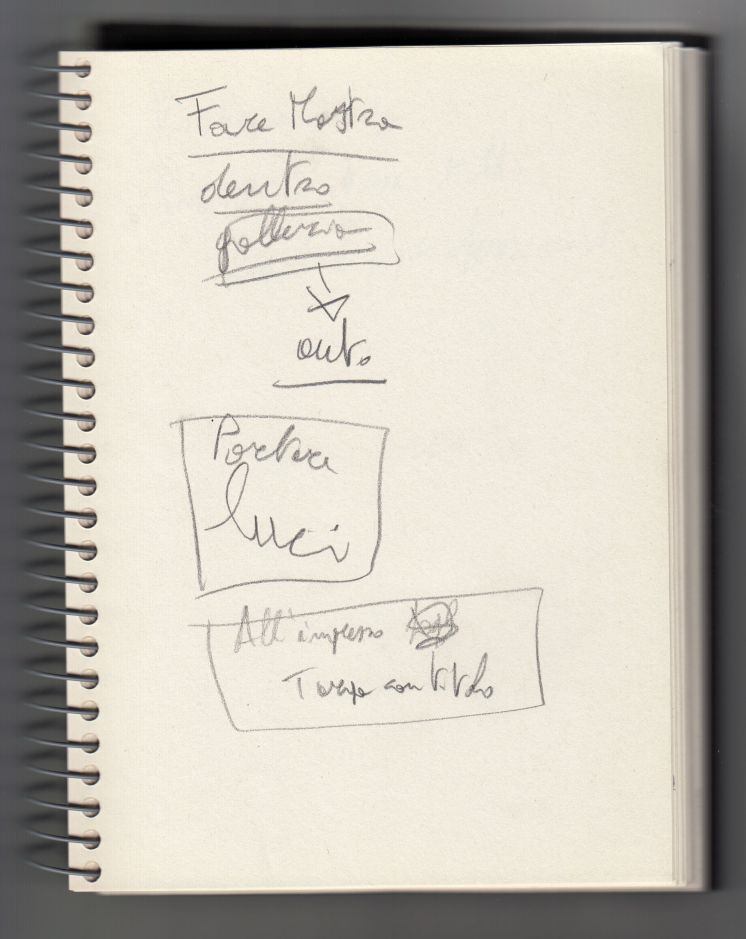 Fare Mostra
dentro
galleria
auto
Portare
luci
All'ingresso
Targa con titolo